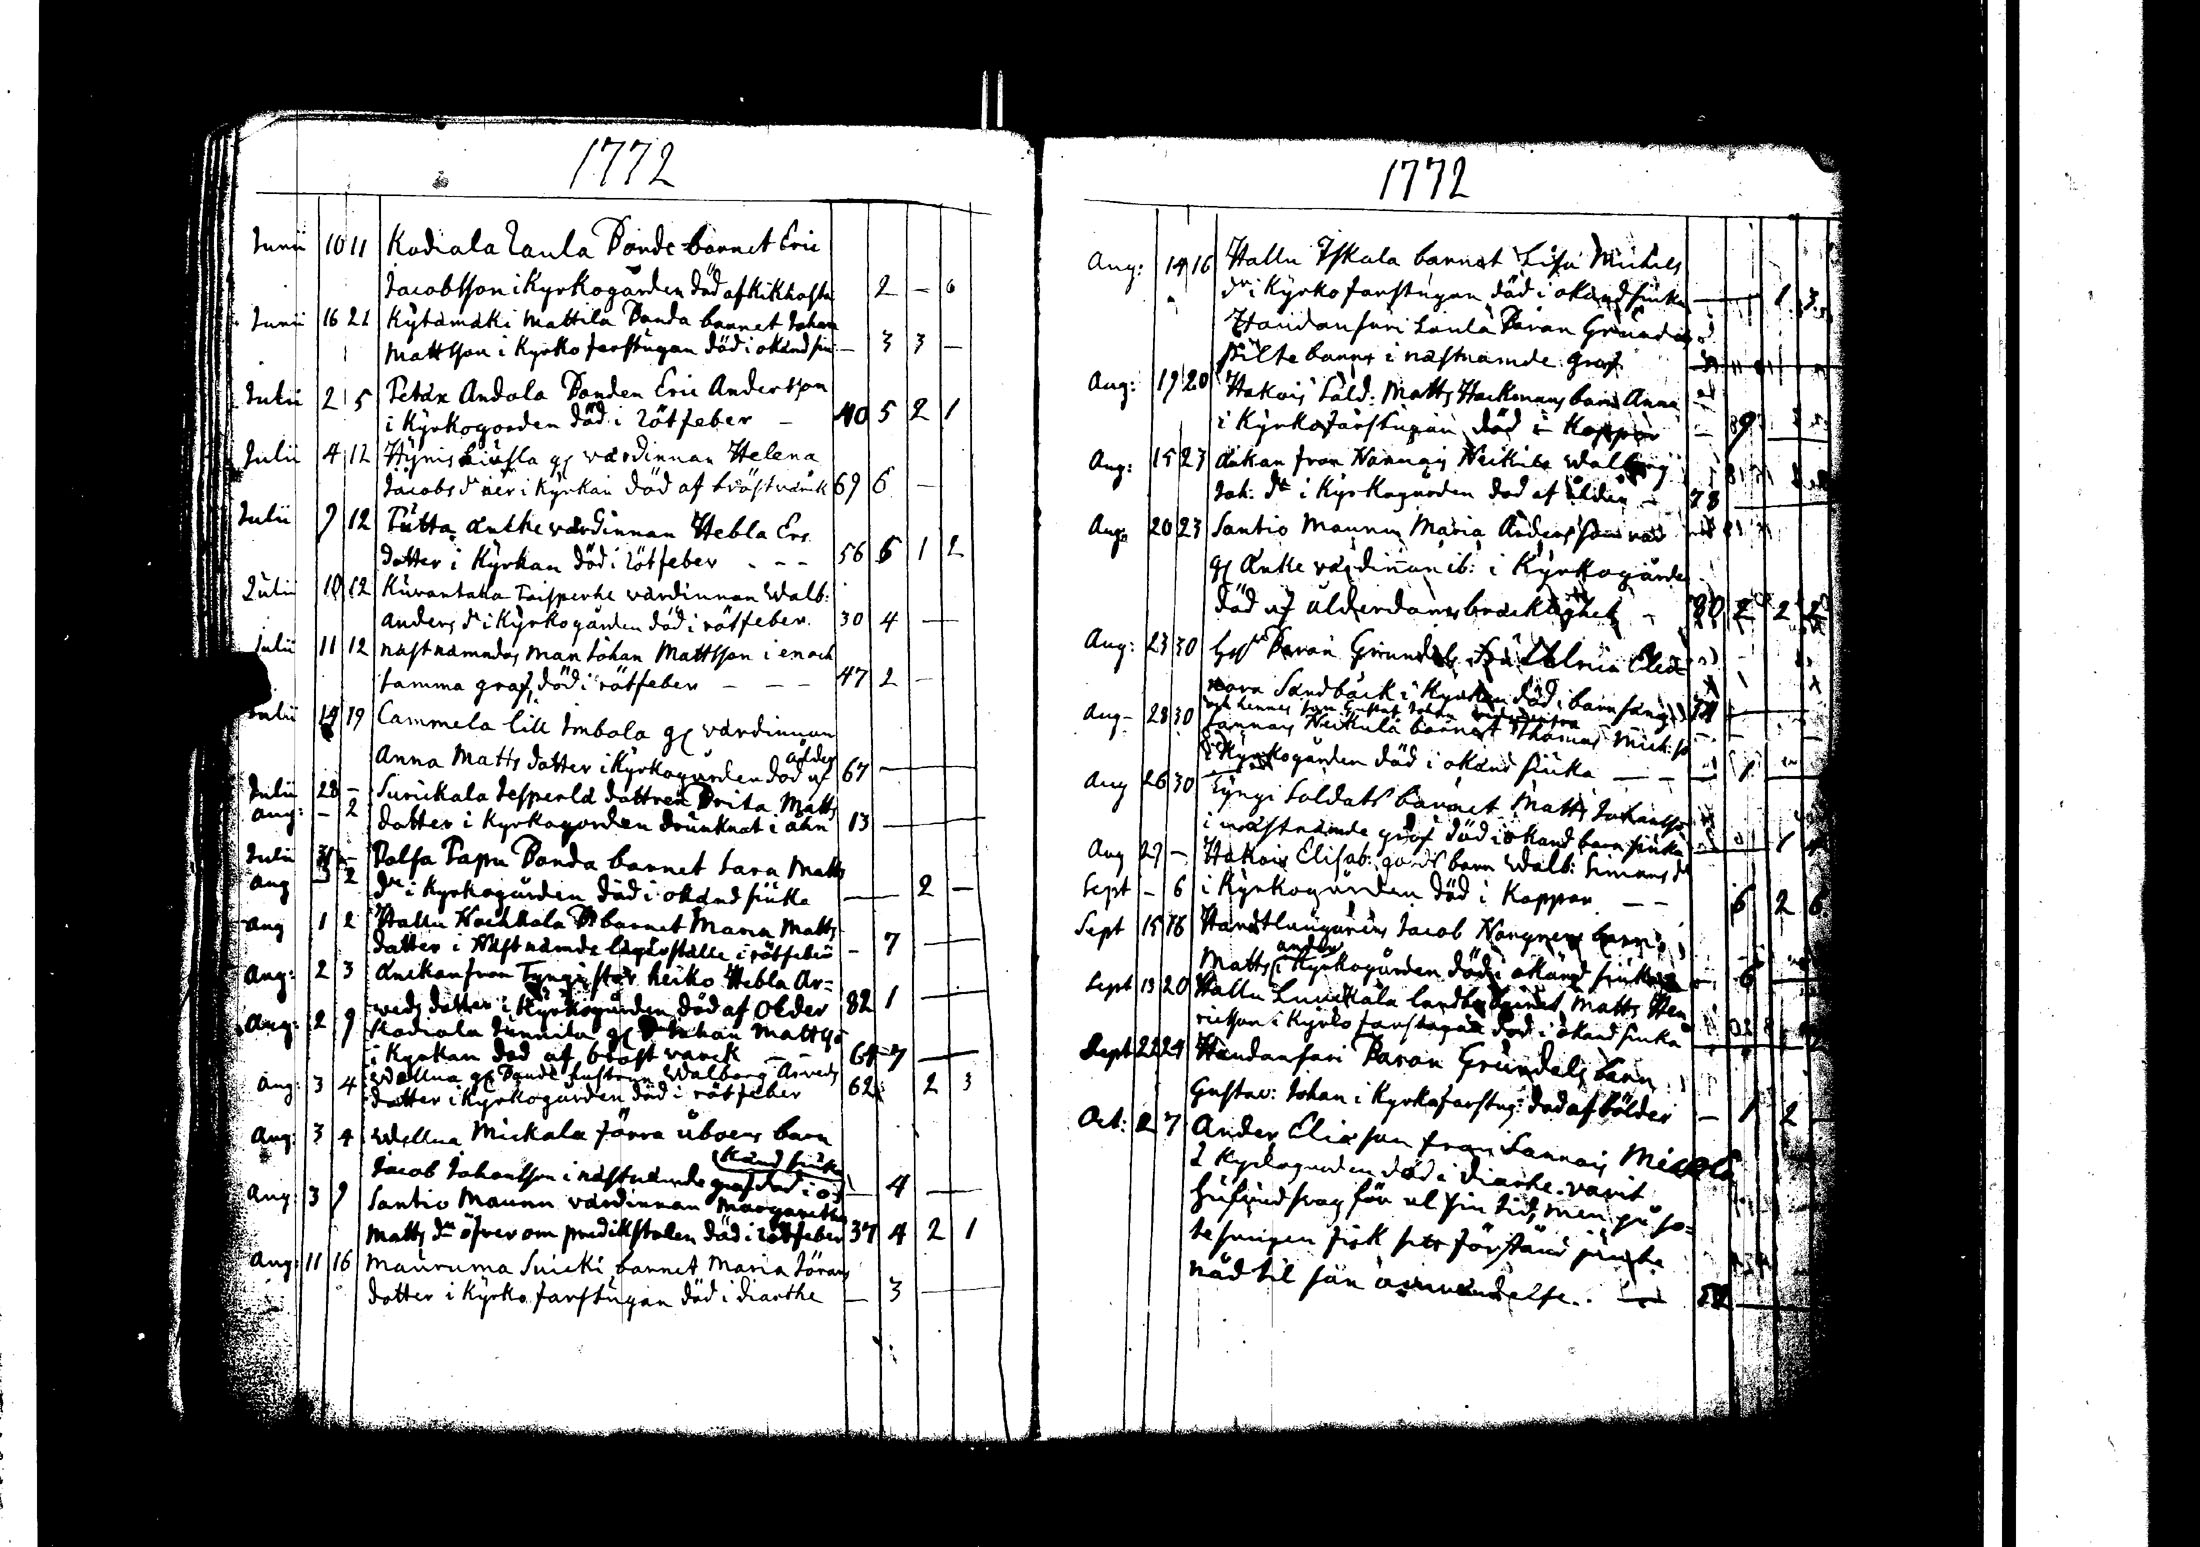 1772
Junii 10 11 Kodiala Laula Bonde barnet Eric
Jacobsson i Kyrkogården död af Kikhosta 2 – 6
Junii 16 21 Kytämäki Mattila Bonda barnet Johan
Mattsson i Kyrko farstugan död i okänd siu – 3 3 –
Julii 2 5 Petäx Andola Bonden Eric Andersson
i Kyrkogorden död i rötfeber – 40 5 2 1
Julii 4 12 Hynis gl värdinnan Helena
Jacobs dr i Kyrkan död af bröstvärck 69 6 –
Julii 9 12 Pütta änkke värdinnan Hebla Ers
dotter i Kyrkan död i rötfeber - - - 56 6 1 2
Julii 10 12 Kuvantaka Toisperhe värdinnan Walb:
Anders dr i Kyrkogården död i rötfeber. 30 4 —
Julii 11 12 nästnämndas man Johan Mattsson i en och
samma graf, död i rötfeber – – – 47 2 –
Julii 14 19 Cammela lill Imbola gl värdinnan
ålder
Anna Matts dotter i Kyrkogården död af 67 —
Julii 28 – Surickala Jesperla dottren Brita Matts
Aug: – 2 dotter i Kyrkogorden drunknat i åhn 13 —
Julii 31 – Palsa Papu Bonda barnet Sara Matts
Aug – 2 dr i Kyrkogården död i okänd siuka — 2 –
Aug 1 2 Hallu Kochkala B barnet Maria Matts
dotter i Näst nämde lägerställe i rötfeber – 7 —
Aug: 2 3 änckan från Tyngi stor heiko Hebla Ar=
weds dotter i Kyrkogården död af Older 82 1 —
Aug: 2 9 Kadiala Junnila gl B Johan Mattss
i Kyrkan död af bröst värck – – 64 7 —
Aug: 3 4 Wallua gl Bonde hustrun Walborg Arveds
dotter i Kyrkogården död i rötfeber 62 2 3
Aug: 3 4 Wallua Mickala förra åboens barn
känd siuka
Jacob Johansson i nästnämde graf död i o – 4 —
Aug: 3 9 Santio Maunu värdinnan Margaretha
Matts dr öfver om predikstolen död i rötfeber 37 4 2 1
Aug: 11 16 Mauruma Suicki barnet Maria Jörans
dotter i Kyrko farstugan död i diarrhe — 3 —
1772
Aug: 14 16 Hallu Yskala barnet Lisa Michels
dr i Kyrko farstugan död i okänd siuka — 1 3
Haudansuri Laula Baron Grundals
pilte barn i nästnämde graf
Aug: 19 20 Hakois Sold. Matts Hackmans barn Anna
i Kyrkofarstugan död i Koppor – 9 —
Aug: 15 23 änkan från Nännäis Heikilä Walborg
Joh: dr i Kyrkogården död af ålder – 78
Aug. 20 23 Santio Maunu Maria Anders som var
gl änke värdinnan ib: i Kyrkogården
död af ålderdoms bräcklighet – 80 2 2 2
Aug: 23 30 Baron Grundals Ulrica Eleo
nora Sandbäck i Kyrkan död i barnsäng —
och hennes son Gustaf Johan
Aug – 28 30 Sannais Heikulä barnet Thomas Mich:s
i Kyrkogården död i okänd siuka — — 1
Aug 26 30 Tyngi Soldats barnet Matts Johansson
i nästnämde graf död i okänd barn siuka — 1
Aug 27 – Hakois Elisab: gårds barn Walb: Simons dr
Sept – 6 i Kyrkogården död i Koppor — — 6 2 6
Sept 15 16 Handtlangarens Jacob Kongrens barn
ander
Matts i Kyrkogården död i okänd siuka 6 —
Sept 13 20 Hallu Luukala landbo barnet Matts Hen
ricsson i Kyrko farstugan död i okänd siuka
Sept 22 24 Haudansari Baron Grundals barn
Gustav: Johan i Kyrkofarstug: död af bölder – 1 2 –
Oct: 2 7 Ander Eliæson från Sannais Mickola
I Kyrkogorden död i diarhe. varit
för al sin tid, men på so=
tesängen fick sitt förstånd
nåd til sin omvändelse. — 52 —